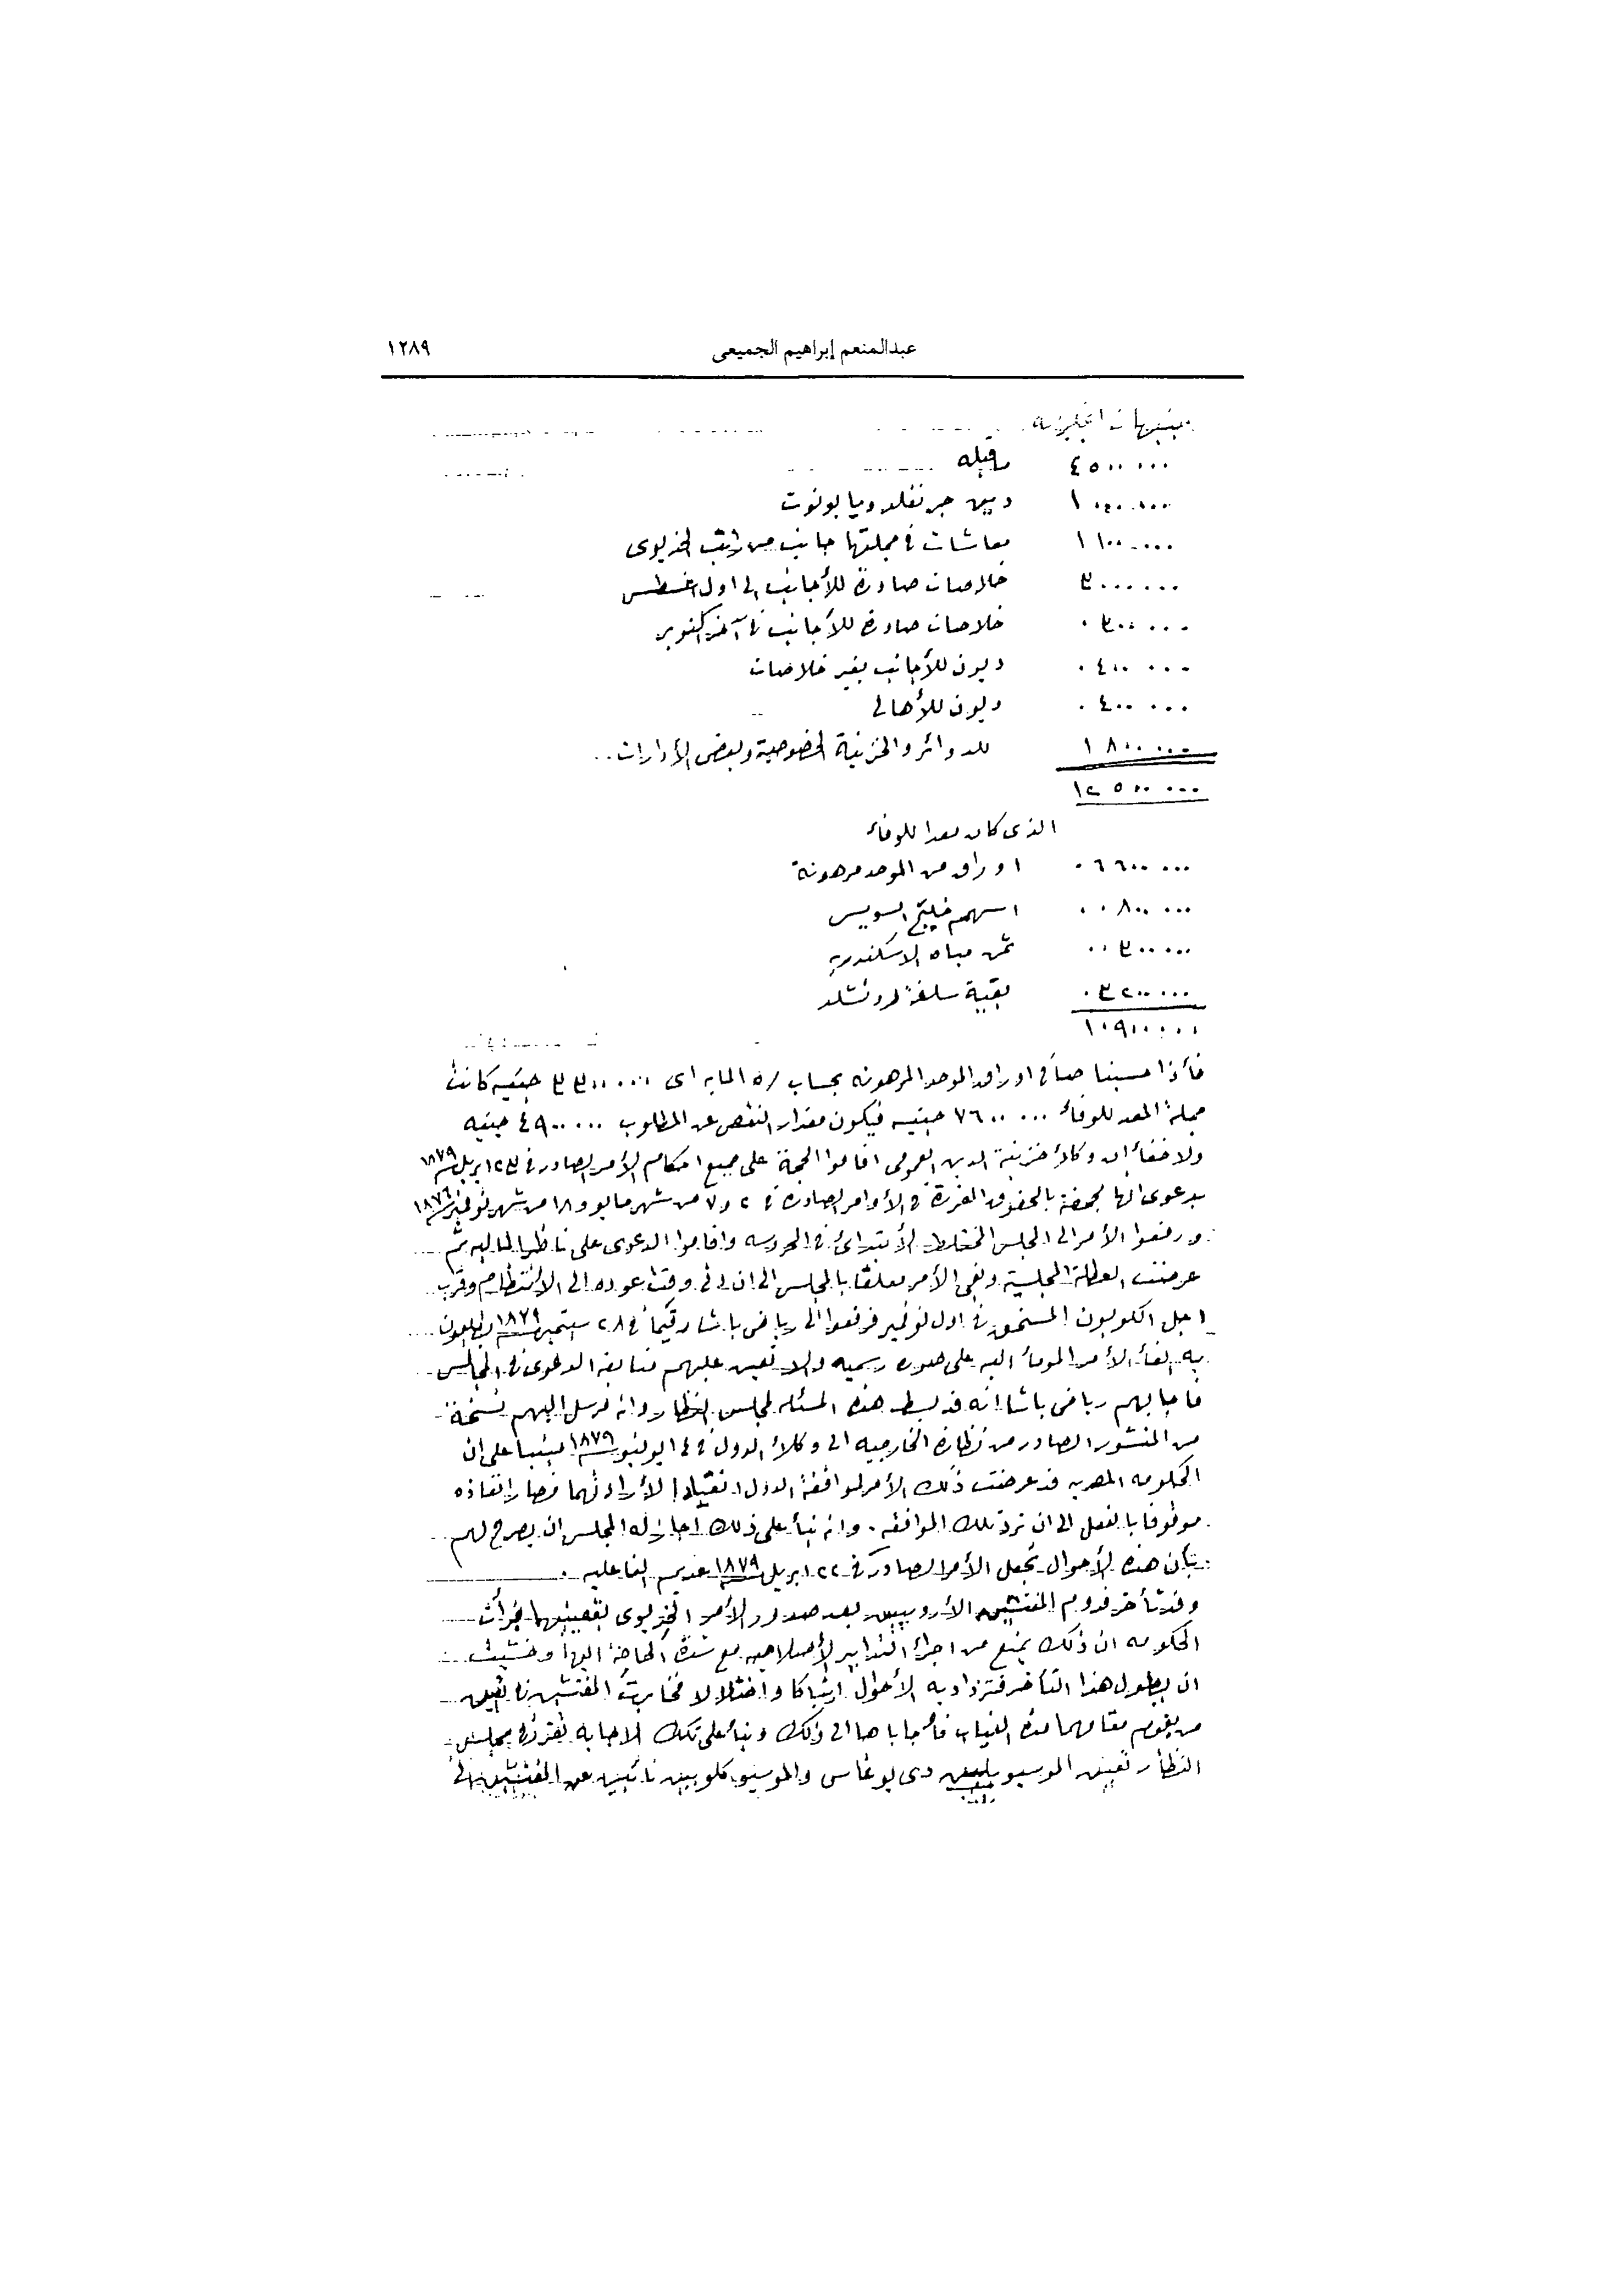 عبدالمنعم إبراهيم الجميعى ١٢٨٩
جنيهات انجليزيه
٤٥٠٠٠٠٠ ماقبله
١ دين جرنفلد وبابونوت
١١٠٠٠٠٠ معاشات فى جملتها جانب من راتب الخديوى
٣٠٠٠٠٠٠ خلاصات صادرة للأجانب الى اول اغسطس
٠٣٠٠٠٠٠ خلاصات صادرة للأجانب فى آخر اكتوبر
٠٤٠٠٠٠٠ ديون للأجانب بغير خلاصات
٠٤٠٠٠٠٠ ديون للأهالى
١٨٠٠٠٠٠ للدوائر والخزينة الخصوصية وبعض الأدارات
١٢٥٠٠٠٠٠
الذى كان معدا للوفاء
٠٦٦٠٠٠٠٠ اوراق من الموحد مرهونة
٠٠٨٠٠٠٠٠ اسهم خليج السويس
٠٠٣٠٠٠٠٠ ثمن مياه الاسكندريه
٠٣٢٠٠٠٠٠ بقية سلفة روتشلد
١٠٩٠٠٠٠٠
فأذا حسبنا صافى اوراق الموحد المرهونه بحساب ٥٠/ المايه اى ٣٣٠٠٠٠٠ جنيه كانت
جملة المعد للوفاء ٧٦٠٠٠٠٠ جنيه فيكون مقدار النقص عن المطلوب ٤٩٠٠٠٠٠ جنيه
ولا خفاء ان وكلاء خزينة الدين العمومى اقاموا الحجة على جميع احكام الأمر الصادر فى ٢٢ ابريل ١٨٧٩
بدعوى انها مجحفة بالحقوق المقررة فى الأوامر الصادرة فى ٢ و٧ من شهر مايو و١٨ من شهر نوفمبر ١٨٧٦
ورفعوا الأمر الى المجلس المختلط الأبتدائى فى المحروسه واقاموا الدعوى على ناظر الماليه ثم
عرضت العطلة المجلسية وبقى الأمر معلقا بالمجلس الى ان دنى وقت عوده الى الأنتظام وقرب
اجل الكوبون المستحق فى اول نوفمبر فرفعوا الى رياض باشا رقيما فى ٢٨ سبتمبر ١٨٧٩ يطلبون
به الغاء الأمر المومأ اليه على صوره رسميه والا تعين عليهم متابعة الدعوى فى المجلس
فاجابهم رياض باشا انه قد بسط هذه المسئله لمجلس النظار وانه مرسل اليهم نسخة
من المنشور الصادر من نظارة الخارجيه الى وكلاء الدول فى يونيو ١٨٧٩ مبنيا على ان
الحكومه المصريه قد عرضت ذلك الأمر لموافقة الدول انقيادا لأرادتهما فصار انفاذه
موقوفا بالفعل الى ان ترد تلك الموافقه. وانه بناء على ذلك اجاز له المجلس ان يصرح لهم
بأن هذه الأحوال تجعل الأمر الصادر فى ٢٢ ابريل ١٨٧٩ عديم الفاعليه.
وقد تأخر قدوم المفتشين الأروبيين بعد صدور الأمر الخديوى بتعيينهما فرأت
الحكومه ان ذلك يمنع من اجراء التدابير الأصلاحيه مع شدة الحاجة اليها وخشيت
ان يطول هذا التأخر فتزداد به الأحوال ارتباكا واختلالا فخابرت المفتشين فى تعيين
من يقوم مقامهما مدة الغياب فأجاباها الى ذلك وبناء على تلك الاجابه تقرر فى مجلس
النظار تعيين المسيو دى بوغاس والموسيو كلوبين نائبين عن المفتشين الى